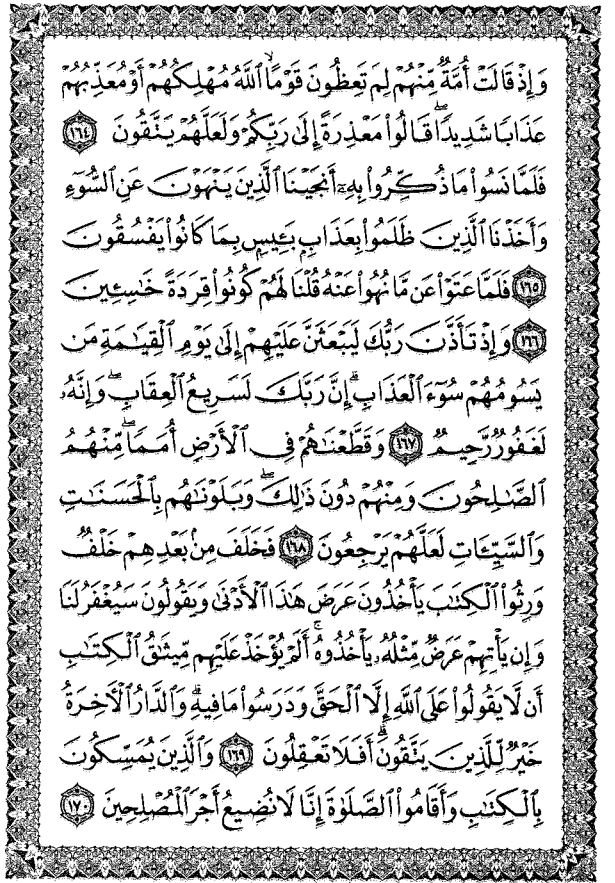 وَإِذۡ قَالَتۡ أُمَّةٞ مِّنۡهُمۡ لِمَ تَعِظُونَ قَوۡمًا ٱللَّهُ مُهۡلِكُهُمۡ أَوۡ مُعَذِّبُهُمۡ
عَذَابٗا شَدِيدٗاۖ قَالُواْ مَعۡذِرَةً إِلَىٰ رَبِّكُمۡ وَلَعَلَّهُمۡ يَتَّقُونَ ١٦٤
فَلَمَّا نَسُواْ مَا ذُكِّرُواْ بِهِۦٓ أَنجَيۡنَا ٱلَّذِينَ يَنۡهَوۡنَ عَنِ ٱلسُّوٓءِ
وَأَخَذۡنَا ٱلَّذِينَ ظَلَمُواْ بِعَذَابِۭ بَـِٔيسِۭ بِمَا كَانُواْ يَفۡسُقُونَ
١٦٥ فَلَمَّا عَتَوۡاْ عَن مَّا نُهُواْ عَنۡهُ قُلۡنَا لَهُمۡ كُونُواْ قِرَدَةً خَٰسِـِٔينَ
١٦٦ وَإِذۡ تَأَذَّنَ رَبُّكَ لَيَبۡعَثَنَّ عَلَيۡهِمۡ إِلَىٰ يَوۡمِ ٱلۡقِيَٰمَةِ مَن
يَسُومُهُمۡ سُوٓءَ ٱلۡعَذَابِۗ إِنَّ رَبَّكَ لَسَرِيعُ ٱلۡعِقَابِۖ وَإِنَّهُۥ
لَغَفُورٞ رَّحِيمٞ ١٦٧ وَقَطَّعۡنَٰهُمۡ فِي ٱلۡأَرۡضِ أُمَمٗاۖ مِّنۡهُمُ
ٱلصَّٰلِحُونَ وَمِنۡهُمۡ دُونَ ذَٰلِكَۖ وَبَلَوۡنَٰهُم بِٱلۡحَسَنَٰتِ
وَٱلسَّيِّـَٔاتِ لَعَلَّهُمۡ يَرۡجِعُونَ ١٦٨ فَخَلَفَ مِنۢ بَعۡدِهِمۡ خَلۡفٞ
وَرِثُواْ ٱلۡكِتَٰبَ يَأۡخُذُونَ عَرَضَ هَٰذَا ٱلۡأَدۡنَىٰ وَيَقُولُونَ سَيُغۡفَرُ لَنَا
وَإِن يَأۡتِهِمۡ عَرَضٞ مِّثۡلُهُۥ يَأۡخُذُوهُۚ أَلَمۡ يُؤۡخَذۡ عَلَيۡهِم مِّيثَٰقُ ٱلۡكِتَٰبِ
أَن لَّا يَقُولُواْ عَلَى ٱللَّهِ إِلَّا ٱلۡحَقَّ وَدَرَسُواْ مَا فِيهِۗ وَٱلدَّارُ ٱلۡأٓخِرَةُ
خَيۡرٞ لِّلَّذِينَ يَتَّقُونَۗ أَفَلَا تَعۡقِلُونَ ١٦٩ وَٱلَّذِينَ يُمَسِّكُونَ
بِٱلۡكِتَٰبِ وَأَقَامُواْ ٱلصَّلَوٰةَ إِنَّا لَا نُضِيعُ أَجۡرَ ٱلۡمُصۡلِحِينَ ١٧٠